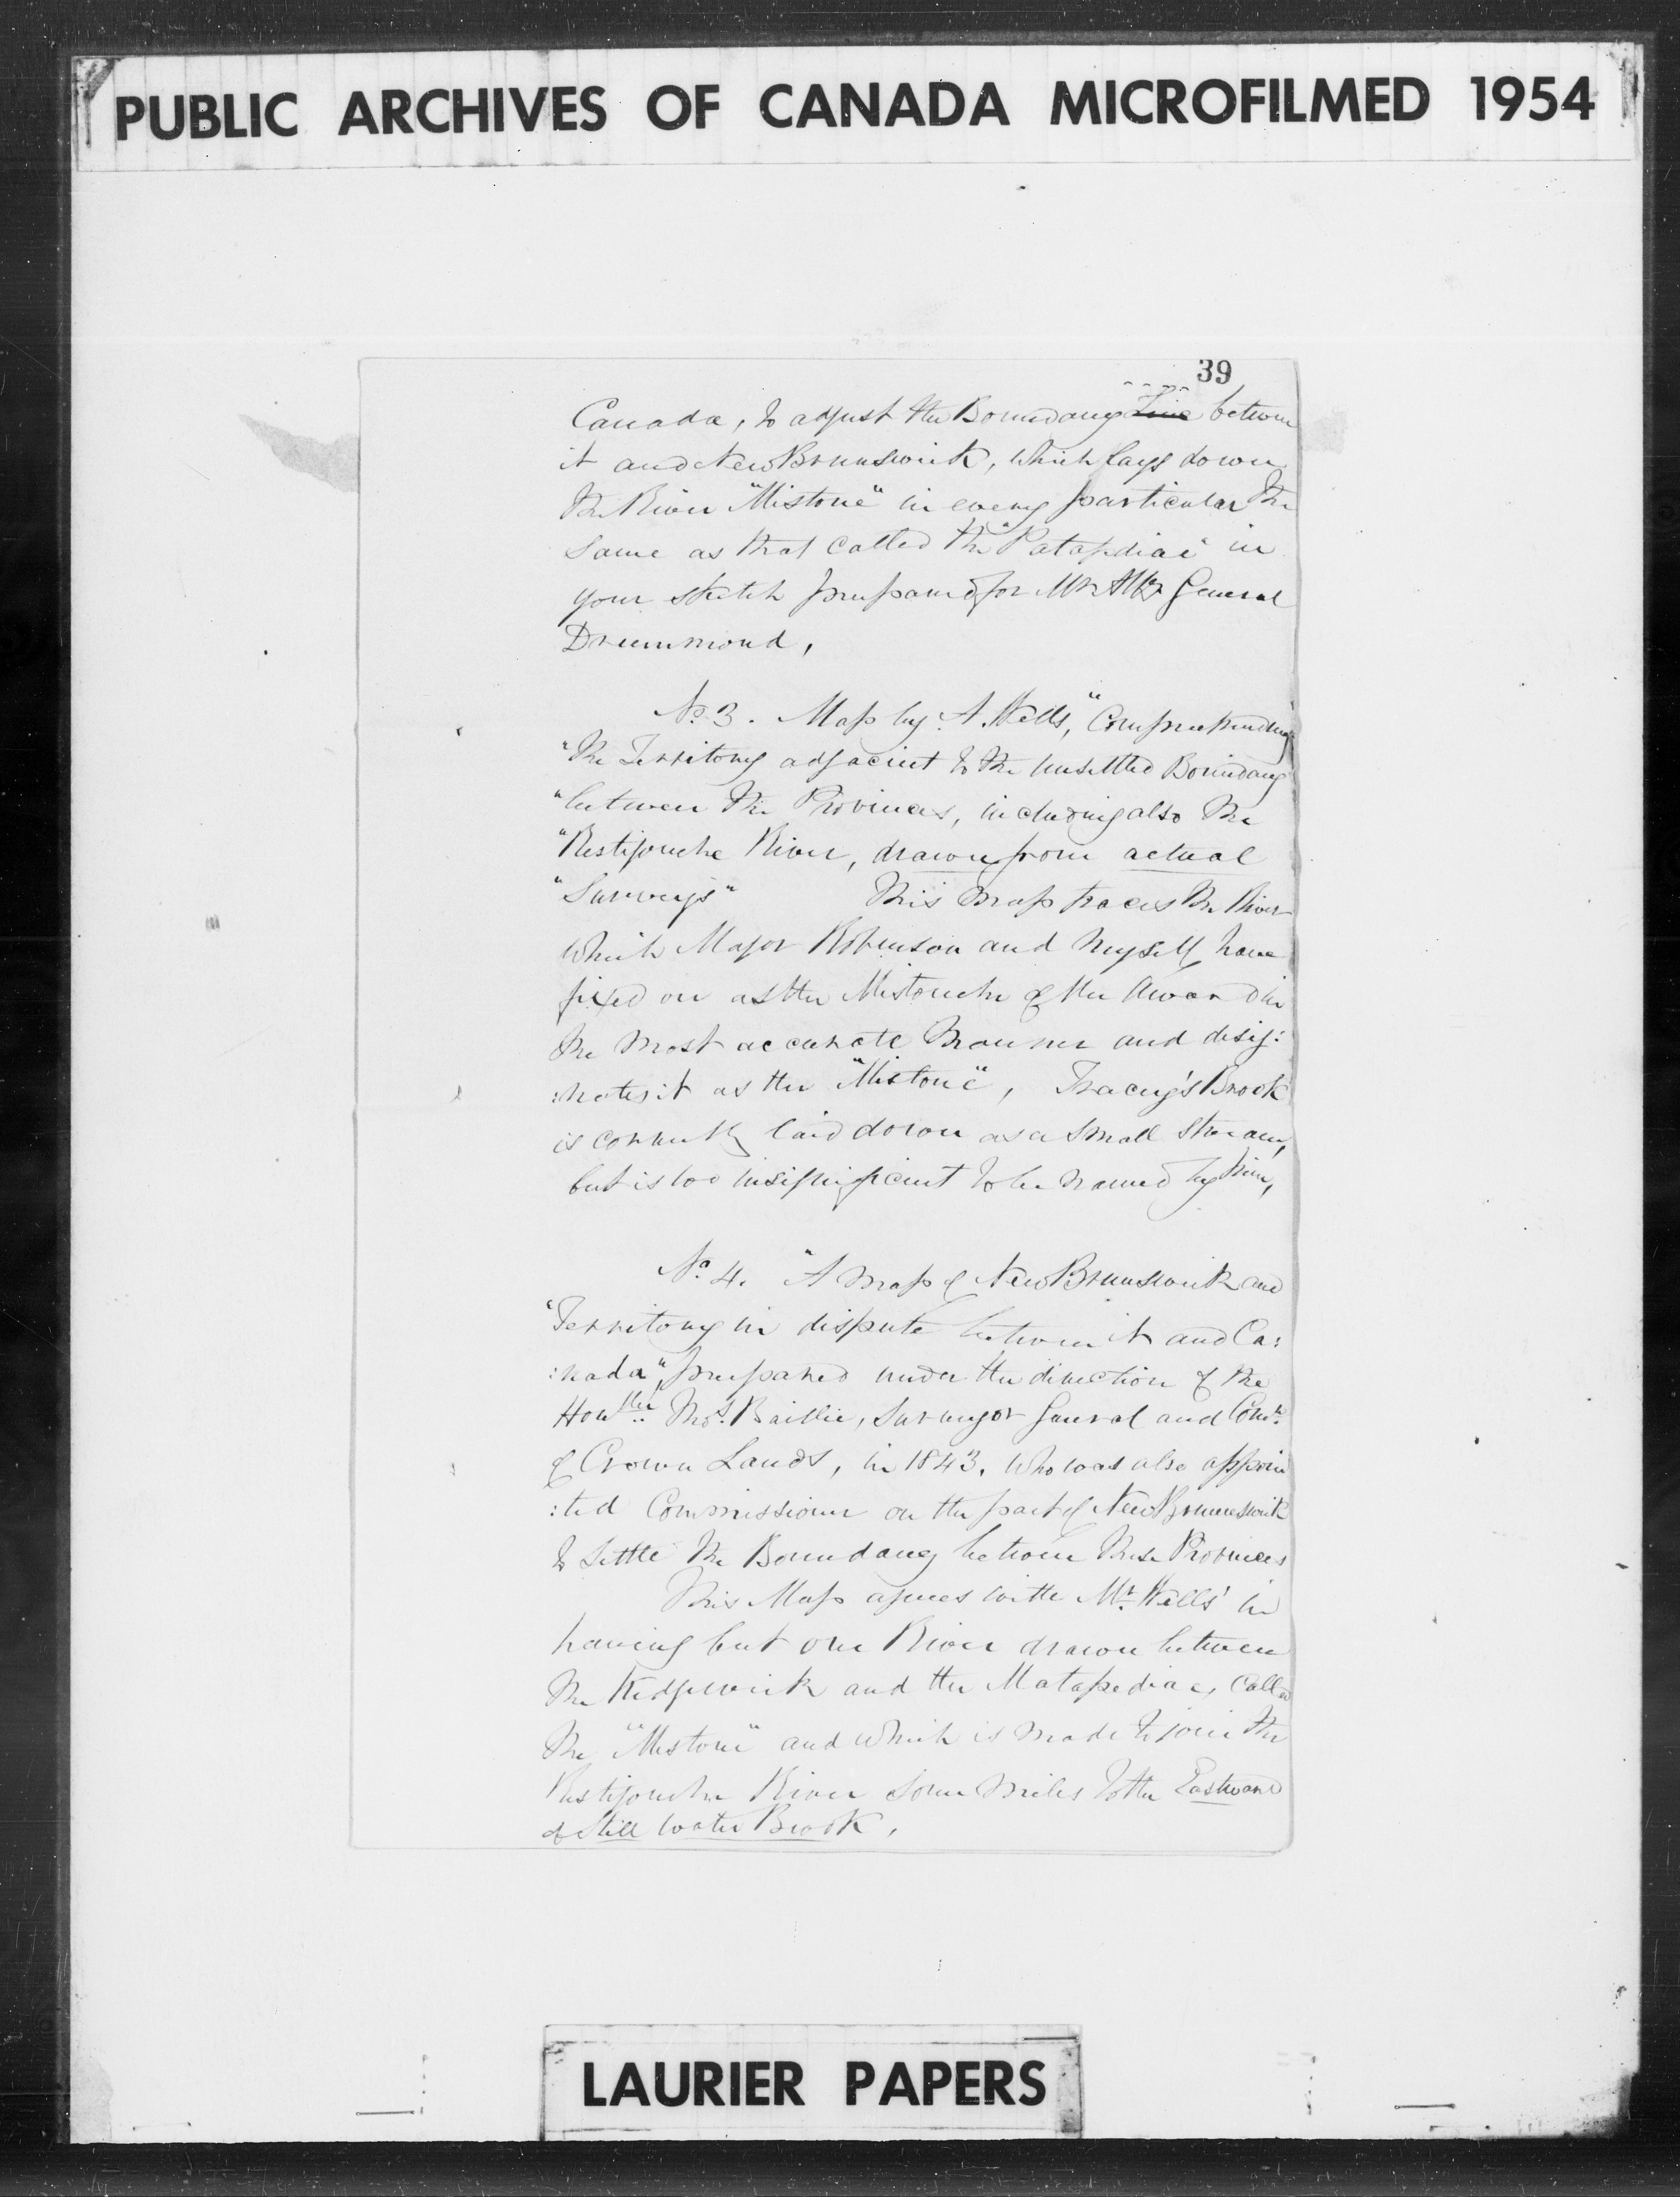 PUBLIC ARCHIVES OF CANADA MICROFILMED 1954
39
Canada, to adjust the Boundary Line between
it and New Brunswick, which lays down
the River "Mistoue" in every particular the
same as that called the "Patapdiac" in
your sketch prepared for Mr Atty General
Drummond,
No 3. Map by A. Wells, "Comprehending
"the Territory adjacent to the unsettled Boundary
"between the Provinces, including also the
"Restigouche River, drawn from actual
"Surveys" This map traces the River
which Major Robinson and myself have
fixed on as the Mistouche of the Award in
the most accurate manner and desig:
:nates it as the "Mistoue", Tracey's Brook
is correctly laid down as a small stream,
but is too insignificant to be named by him,
No 4. "A map of New Brunswick and
"Territory in dispute between it and Ca:
:nada", prepared under the direction of the
Honble Thos. Baillie, Surveyor General and Comr.
of Crown Lands, in 1843, who was also appoin
:ted Commissioner on the part of New Brunswick
to settle the Boundary between these Provinces
This Map agrees with Mr. Wells' in
having but one River drawn between
the Kedgwick and the Matapediac, called
the "Mistoue" and which is made to join the
Restigouche River some miles to the Eastward
of Still Water Brook.
LAURIER PAPERS